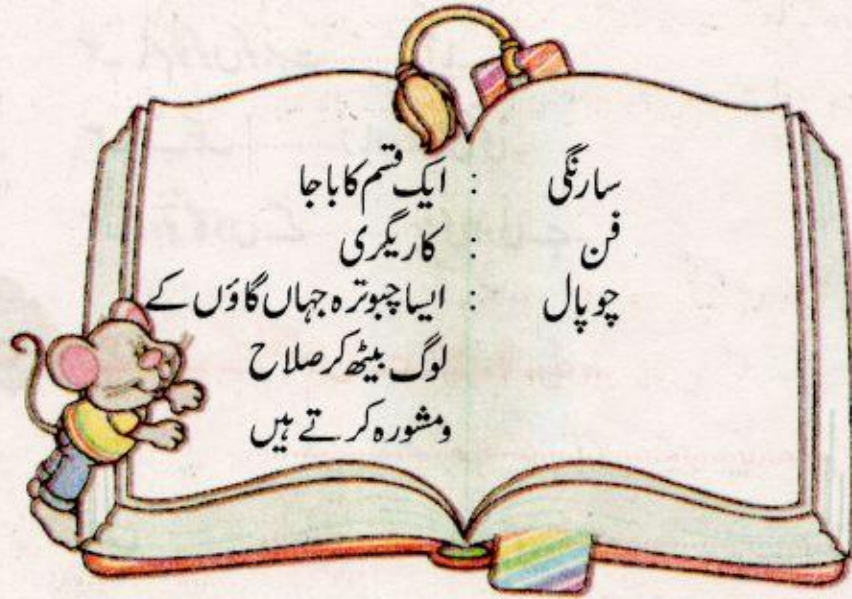 سارنگی : ایک قسم کا باجا
فن : کاریگری
چوپال : ایسا چبوترہ جہاں گاؤں کے
لوگ بیٹھ کر صلاح
ومشورہ کرتے ہیں